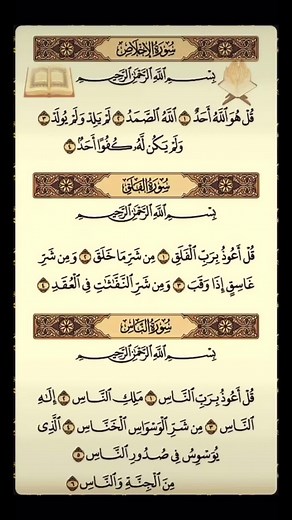 سُورَةُ الإِخْلَاصِ
بِسْمِ اللَّهِ الرَّحْمَٰنِ الرَّحِيمِ
قُلْ هُوَ اللَّهُ أَحَدٌ ١ اللَّهُ الصَّمَدُ ٢ لَمْ يَلِدْ وَلَمْ يُولَدْ ٣
وَلَمْ يَكُن لَّهُ كُفُوًا أَحَدٌ ٤
سُورَةُ الفَلَقِ
بِسْمِ اللَّهِ الرَّحْمَٰنِ الرَّحِيمِ
قُلْ أَعُوذُ بِرَبِّ الْفَلَقِ ١ مِن شَرِّ مَا خَلَقَ ٢ وَمِن شَرِّ
غَاسِقٍ إِذَا وَقَبَ ٣ وَمِن شَرِّ النَّفَّٰثَٰتِ فِي الْعُقَدِ ٤
سُورَةُ النَّاسِ
بِسْمِ اللَّهِ الرَّحْمَٰنِ الرَّحِيمِ
قُلْ أَعُوذُ بِرَبِّ النَّاسِ ١ مَلِكِ النَّاسِ ٢ إِلَٰهِ
النَّاسِ ٣ مِن شَرِّ الْوَسْوَاسِ الْخَنَّاسِ ٤ الَّذِي
يُوَسْوِسُ فِي صُدُورِ النَّاسِ ٥
مِنَ الْجِنَّةِ وَالنَّاسِ ٦